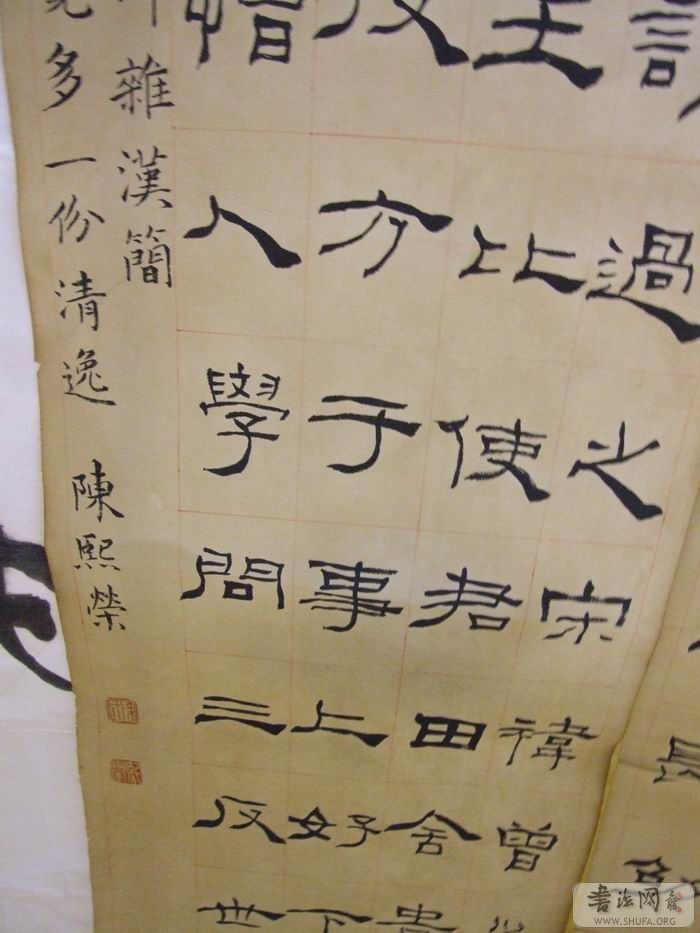 過之宋禕曾
王比使君田舍貴
反方于事上好下
憎人學問三反世
雜漢簡
多一份清逸 陳熙榮
書法网
WWW.SHUFA.ORG